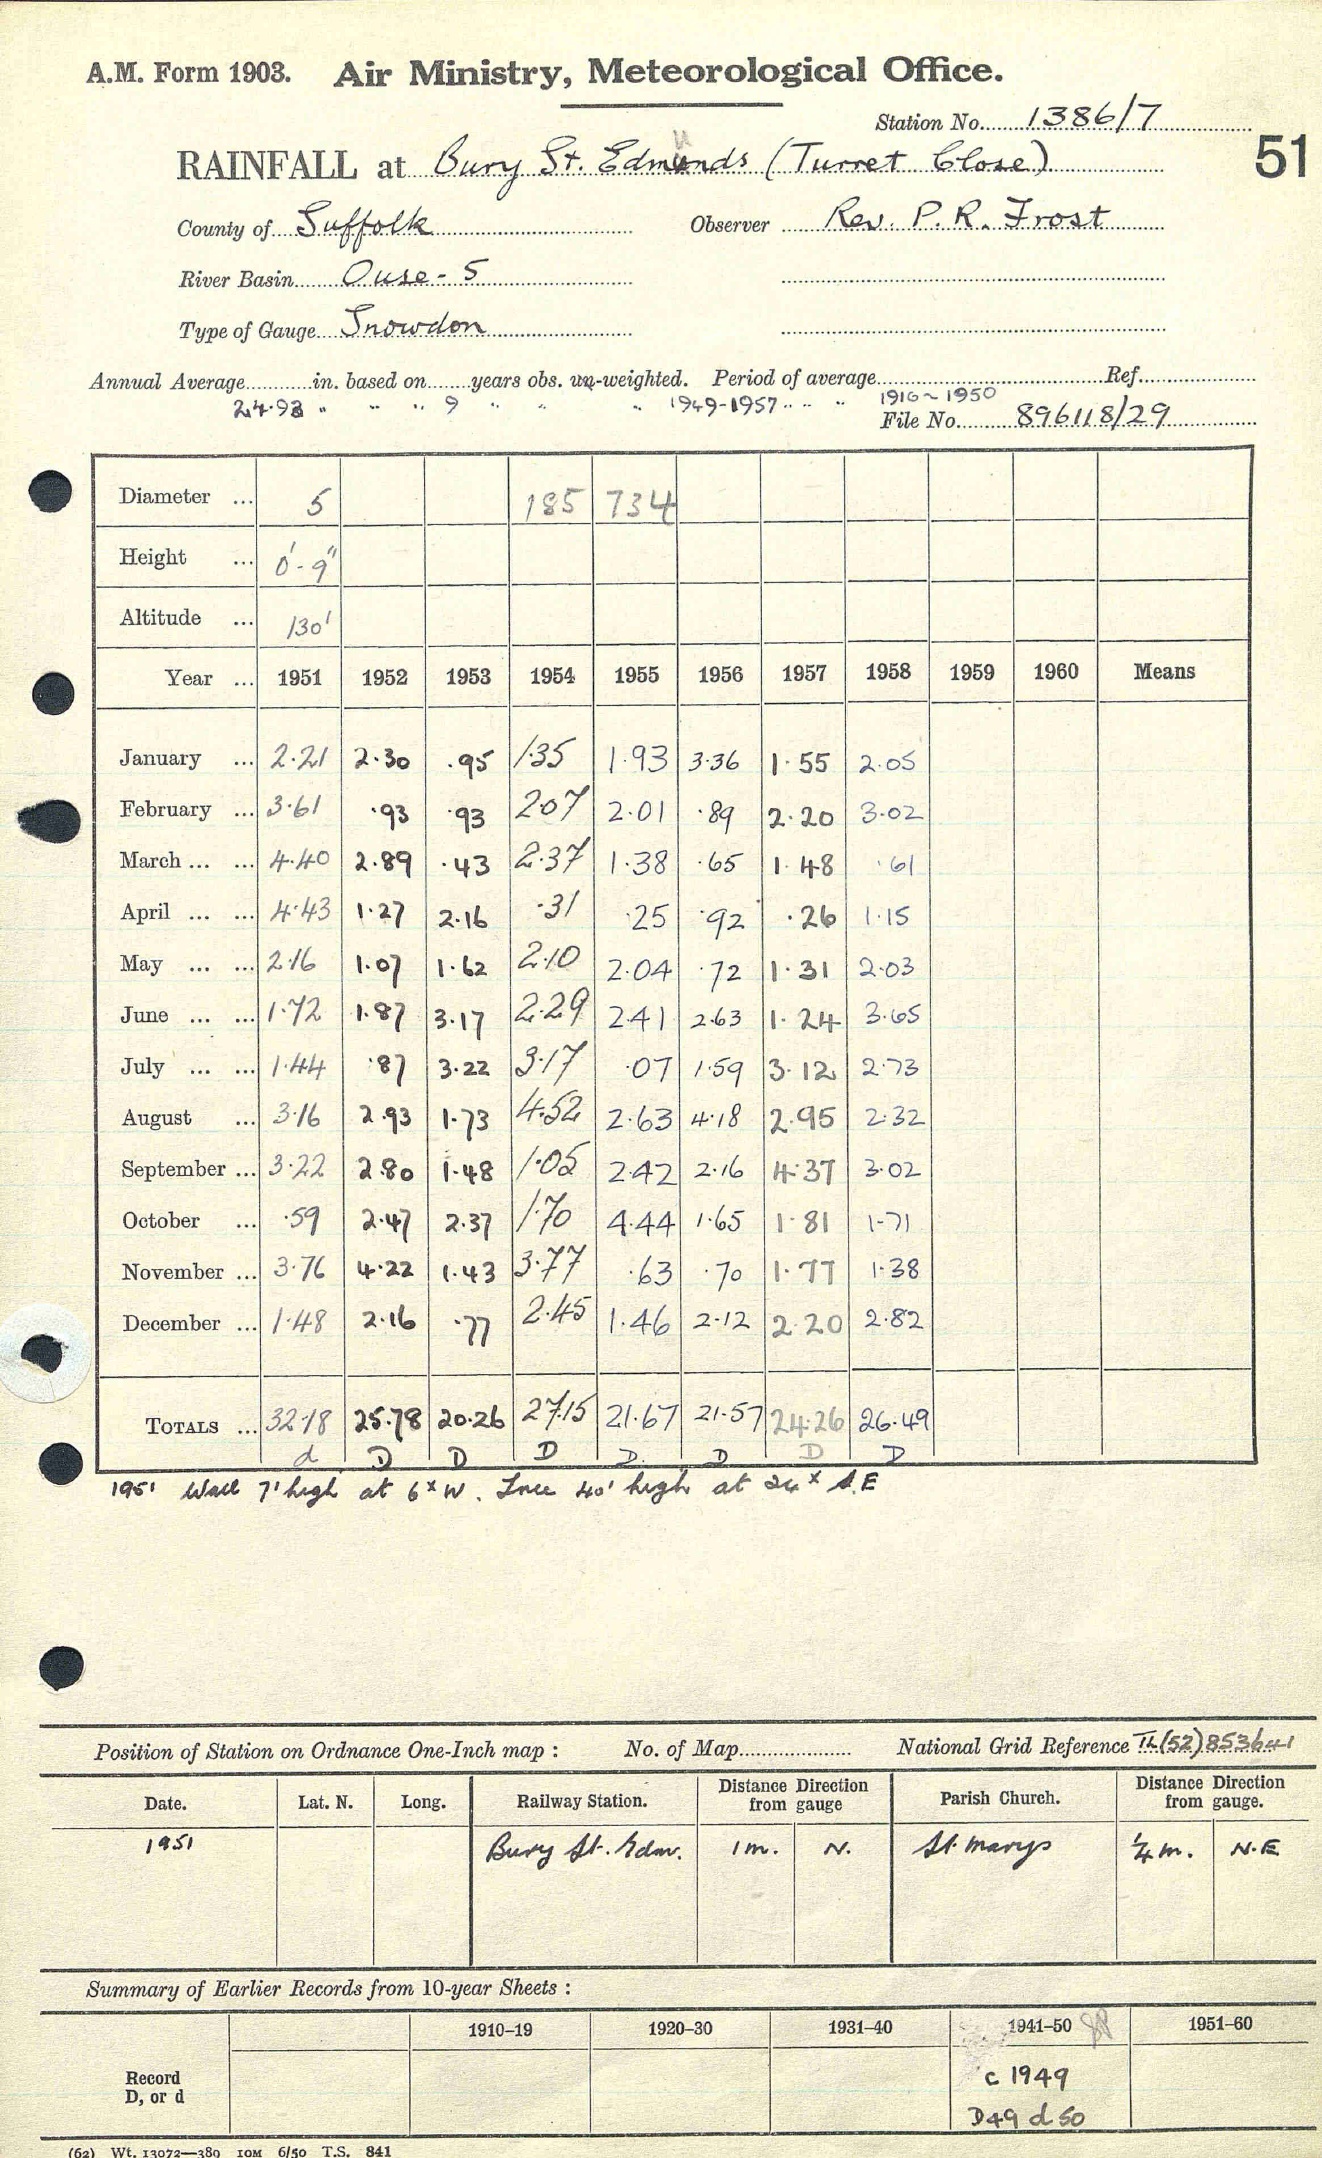 A.M. Form 1903. Air Ministry, Meteorological Office.
Station No. 1386/7
51
RAINFALL at Bury St. Edmunds (Turret Close)
County of Suffolk Observer Rev. P. R. Frost
River Basin Ouse - 5
Type of Gauge Snowdon
Annual Average in. based on years obs. un-weighted. Period of average Ref.
24.93 " " " 9 " " " 1949-1957 " " " 1916-1950
File No. 896118/29
Diameter ... 5 185 734
Height ... 0'-9"
Altitude ... 130'
Year ... 1951 1952 1953 1954 1955 1956 1957 1958 1959 1960 Means
January ... 2.21 2.30 .95 1.35 1.93 3.36 1.55 2.05
February ... 3.61 .93 .93 2.07 2.01 .89 2.20 3.02
March ... ... 4.40 2.89 .43 2.37 1.38 .65 1.48 .61
April ... ... 4.43 1.27 2.16 .31 .25 .92 .26 1.15
May ... ... 2.16 1.07 1.62 2.10 2.04 .72 1.31 2.03
June ... ... 1.72 1.87 3.17 2.29 2.41 2.63 1.24 3.65
July ... ... 1.44 .87 3.22 3.17 .07 1.59 3.12 2.73
August ... 3.16 2.93 1.73 4.52 2.63 4.18 2.95 2.32
September ... 3.22 2.80 1.48 1.05 2.42 2.16 4.37 3.02
October ... .59 2.47 2.37 1.70 4.44 1.65 1.81 1.71
November ... 3.76 4.22 1.43 3.77 .63 .70 1.77 1.38
December ... 1.48 2.16 .77 2.45 1.46 2.12 2.20 2.82
TOTALS ... 32.18 25.78 20.26 27.15 21.67 21.57 24.26 26.49
d D D D D D D D
1951 Wall 7' high at 6x W. Tree 40' high at 24x S.E
Position of Station on Ordnance One-Inch map : No. of Map National Grid Reference TL(52)853641
Date. Lat. N. Long. Railway Station. Distance from gauge Direction Parish Church. Distance from gauge. Direction
1951 Bury St. Edm. 1 m. N. St. Marys ¼ m. N.E
Summary of Earlier Records from 10-year Sheets :
1910–19 1920–30 1931–40 1941–50 1951–60
Record D, or d
c 1949
D49 d 50
(62) Wt. 13072—389 10M 6/50 T.S. 841